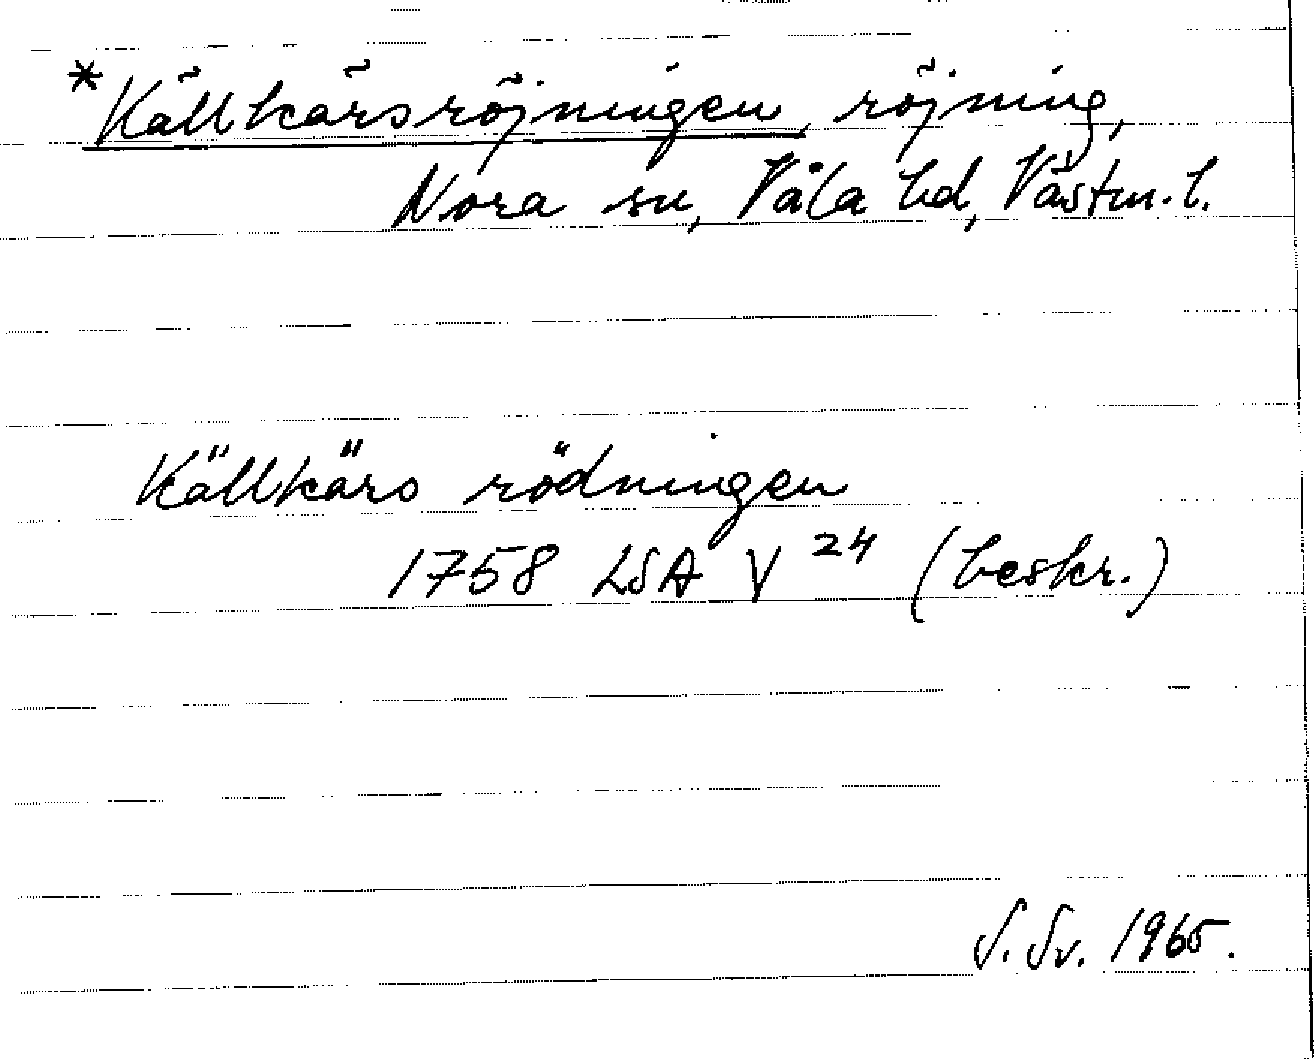 *Källkärsröjningen, röjning,
Nora sn, Våla hd, Västm. l.
Källkärs rödningen
1758 LSA V 24 (beskr.)
S. Sv. 1965.